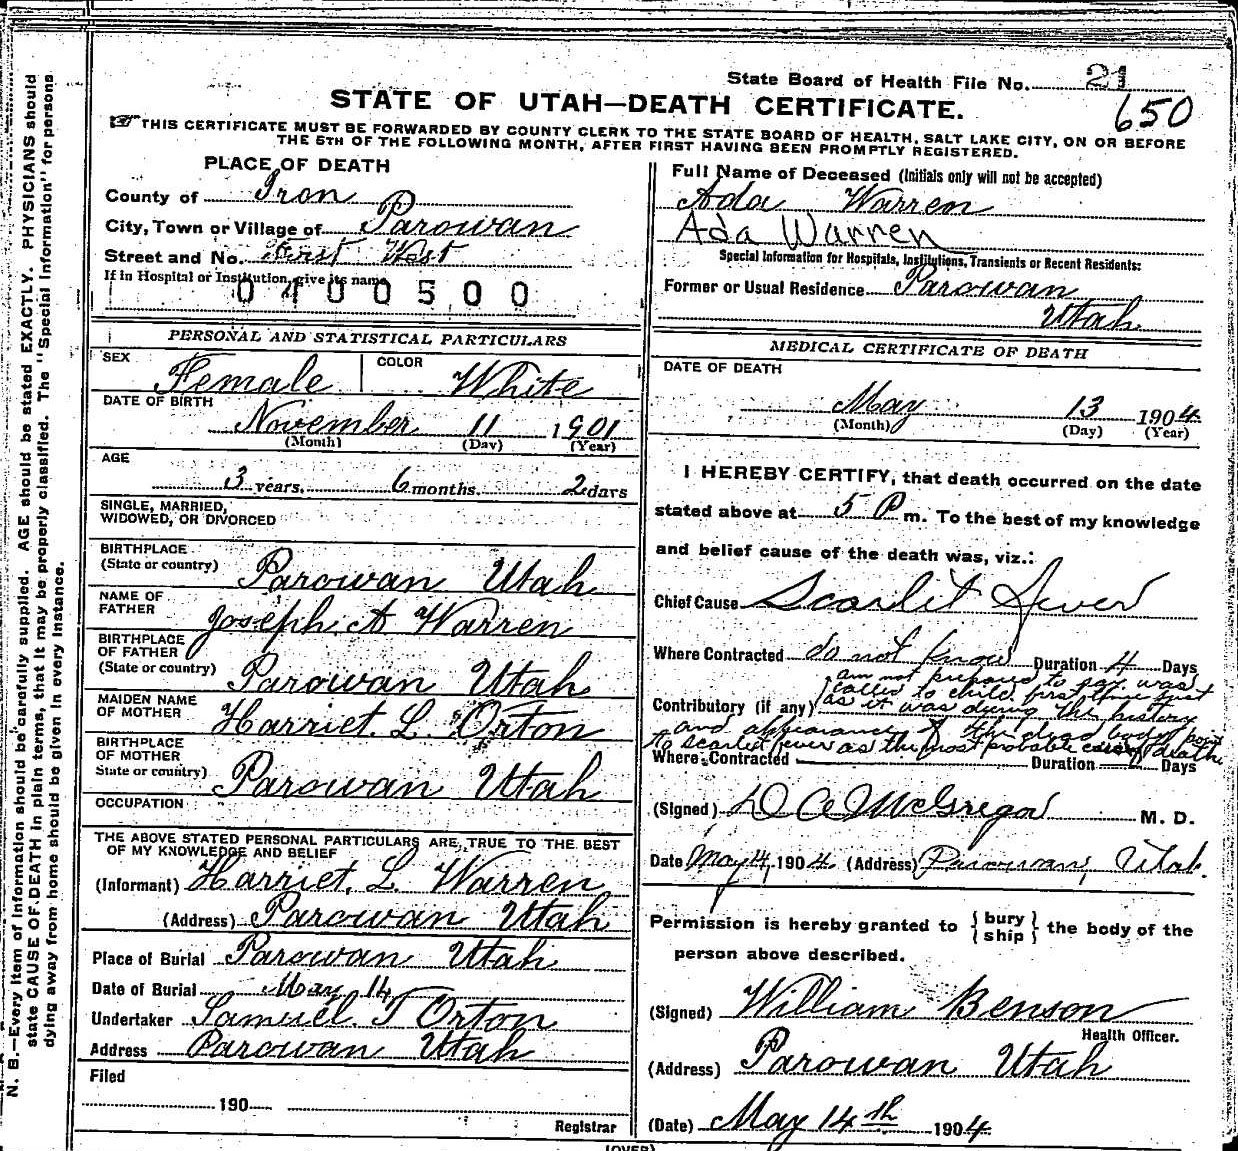 State Board of Health File No. 21
650
STATE OF UTAH—DEATH CERTIFICATE.
THIS CERTIFICATE MUST BE FORWARDED BY COUNTY CLERK TO THE STATE BOARD OF HEALTH, SALT LAKE CITY, ON OR BEFORE
THE 5TH OF THE FOLLOWING MONTH, AFTER FIRST HAVING BEEN PROMPTLY REGISTERED.
PLACE OF DEATH
County of Iron
City, Town or Village of Parowan
Street and No. First West
If in Hospital or Institution, give its name
0400500
PERSONAL AND STATISTICAL PARTICULARS
SEX Female COLOR White
DATE OF BIRTH
November 11 1901
(Month) (Day) (Year)
AGE
3 years, 6 months, 2 days
SINGLE, MARRIED,
WIDOWED, OR DIVORCED
BIRTHPLACE
(State or country) Parowan Utah
NAME OF
FATHER Joseph A Warren
BIRTHPLACE
OF FATHER
(State or country) Parowan Utah
MAIDEN NAME
OF MOTHER Harriet L. Orton
BIRTHPLACE
OF MOTHER
State or country) Parowan Utah
OCCUPATION
THE ABOVE STATED PERSONAL PARTICULARS ARE TRUE TO THE BEST
OF MY KNOWLEDGE AND BELIEF
(Informant) Harriet. L. Warren
(Address) Parowan Utah
Place of Burial Parowan Utah
Date of Burial May 14
Undertaker Samuel. T Orton
Address Parowan Utah
Filed
190
Registrar
Full Name of Deceased (Initials only will not be accepted)
Ada Warren
Ada Warren
Special Information for Hospitals, Institutions, Transients or Recent Residents:
Former or Usual Residence Parowan
Utah
MEDICAL CERTIFICATE OF DEATH
DATE OF DEATH
May 13 1904
(Month) (Day) (Year)
I HEREBY CERTIFY, that death occurred on the date
stated above at 5 P m. To the best of my knowledge
and belief cause of the death was, viz.:
Chief Cause Scarlit Fever
Where Contracted do not know Duration 4 Days
am not prepared to say was
called to child first time just
Contributory (if any) as it was dying the history
and appearance of the dead body point
to scarlet fever as the most probable cause of death
Where Contracted Duration Days
(Signed) D A McGregor M. D.
Date May 14, 1904 (Address) Parowan, Utah.
Permission is hereby granted to { bury ship } the body of the
person above described.
(Signed) William Benson
Health Officer.
(Address) Parowan Utah
(Date) May 14th 1904
(OVER)
N. B.—Every item of information should be carefully supplied. AGE should be stated EXACTLY. PHYSICIANS should
state CAUSE OF DEATH in plain terms, that it may be properly classified. The "Special Information" for persons
dying away from home should be given in every instance.